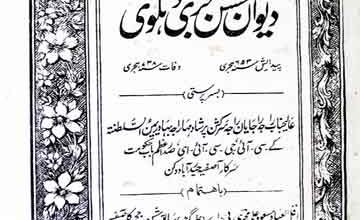 دیوان حسن سجزی دہلوی
پیدایش ۶۵۳ ہجری وفات ۷۳۸ ہجری
بسرپرستی
عالیجناب راجہ راجایان راجہ سرکشن پرشاد مہاراجہ بہادر یمین السلطنتہ
کے۔سی۔آئی۔ای۔جی۔سی۔آئی۔ای صدر اعظم باب حکومت
سرکار آصفیہ حیدرآباد دکن
باہتمام